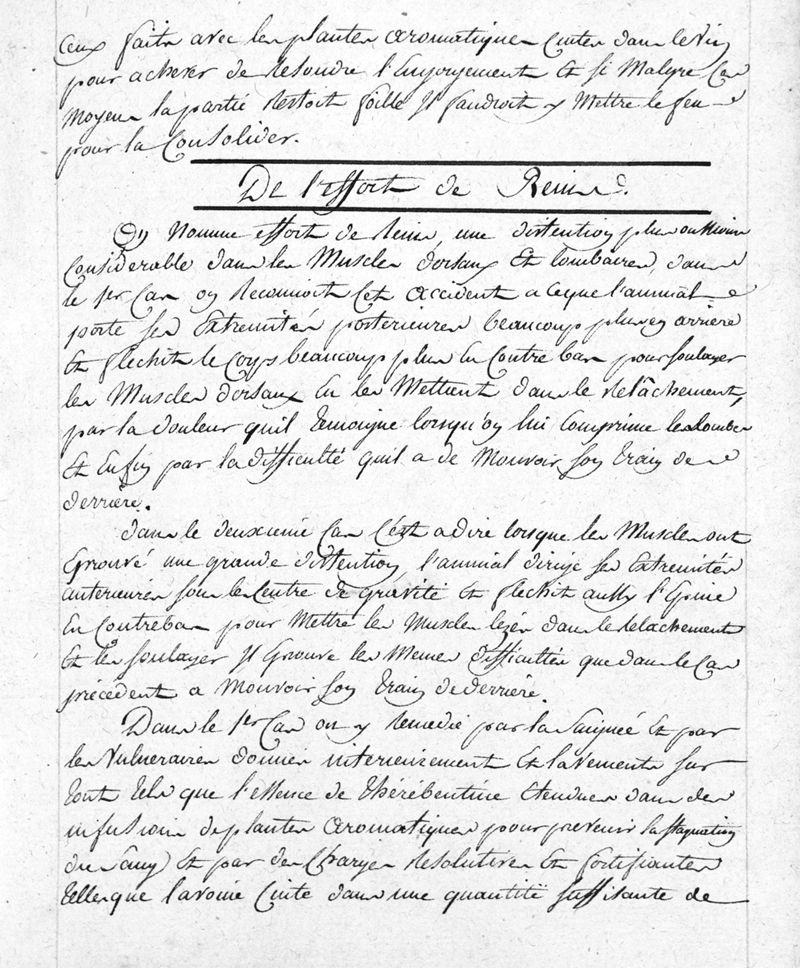 Ceux faits avec les plantes aromatiques Cuites dans le Vin
pour achever de Resoudre l'Engorgement Et si Malgre Ces
Moyens la partie Restoit foible Il faudroit y Mettre le feu
pour la Consolider.
De l'effort de Reins.
On Nomme effort de Reins une distention plus ou Moins
Considerable dans les Muscles dorsaux Et lombaires, dans
le 1er Cas on Reconnoit Cet accident a ceque l'animal
porte ses Extremités posterieures beaucoup plus en arriere
Et flechit le Corps beaucoup plus En Contre bas pour soulager
les Muscles dorsaux En les Mettant dans le Relâchement,
par la douleur quil temoigne lorsqu'on lui Comprime les lombes
Et Enfin par la difficulté quil a de Mouvoir son train de
derriere.
dans le deuxieme Cas C'est a dire lorsque les Muscles ont
Eprouvé une grande distention, l'animal dirige ses Extremités
anterieures sous le Centre de gravité Et flechit aussi l'Epine
En Contrebas pour Mettre les Muscles lezés dans le Relachement
Et les soulager Il Eprouve les Memes difficultées que dans le Cas
précédent a Mouvoir son train de derriere.
Dans le 1er Cas on y Remedie par la Saignée Et par
les Vulneraires donnés interieurement Et lavements sur
tout tels que l'essence de thérébentine Etendue dans des
infusions de plantes aromatiques pour prevenir la stagnation
du Sang Et par des Charges Resolutives Et fortifiantes
telles que l'avoine Cuite dans une quantité suffisante de